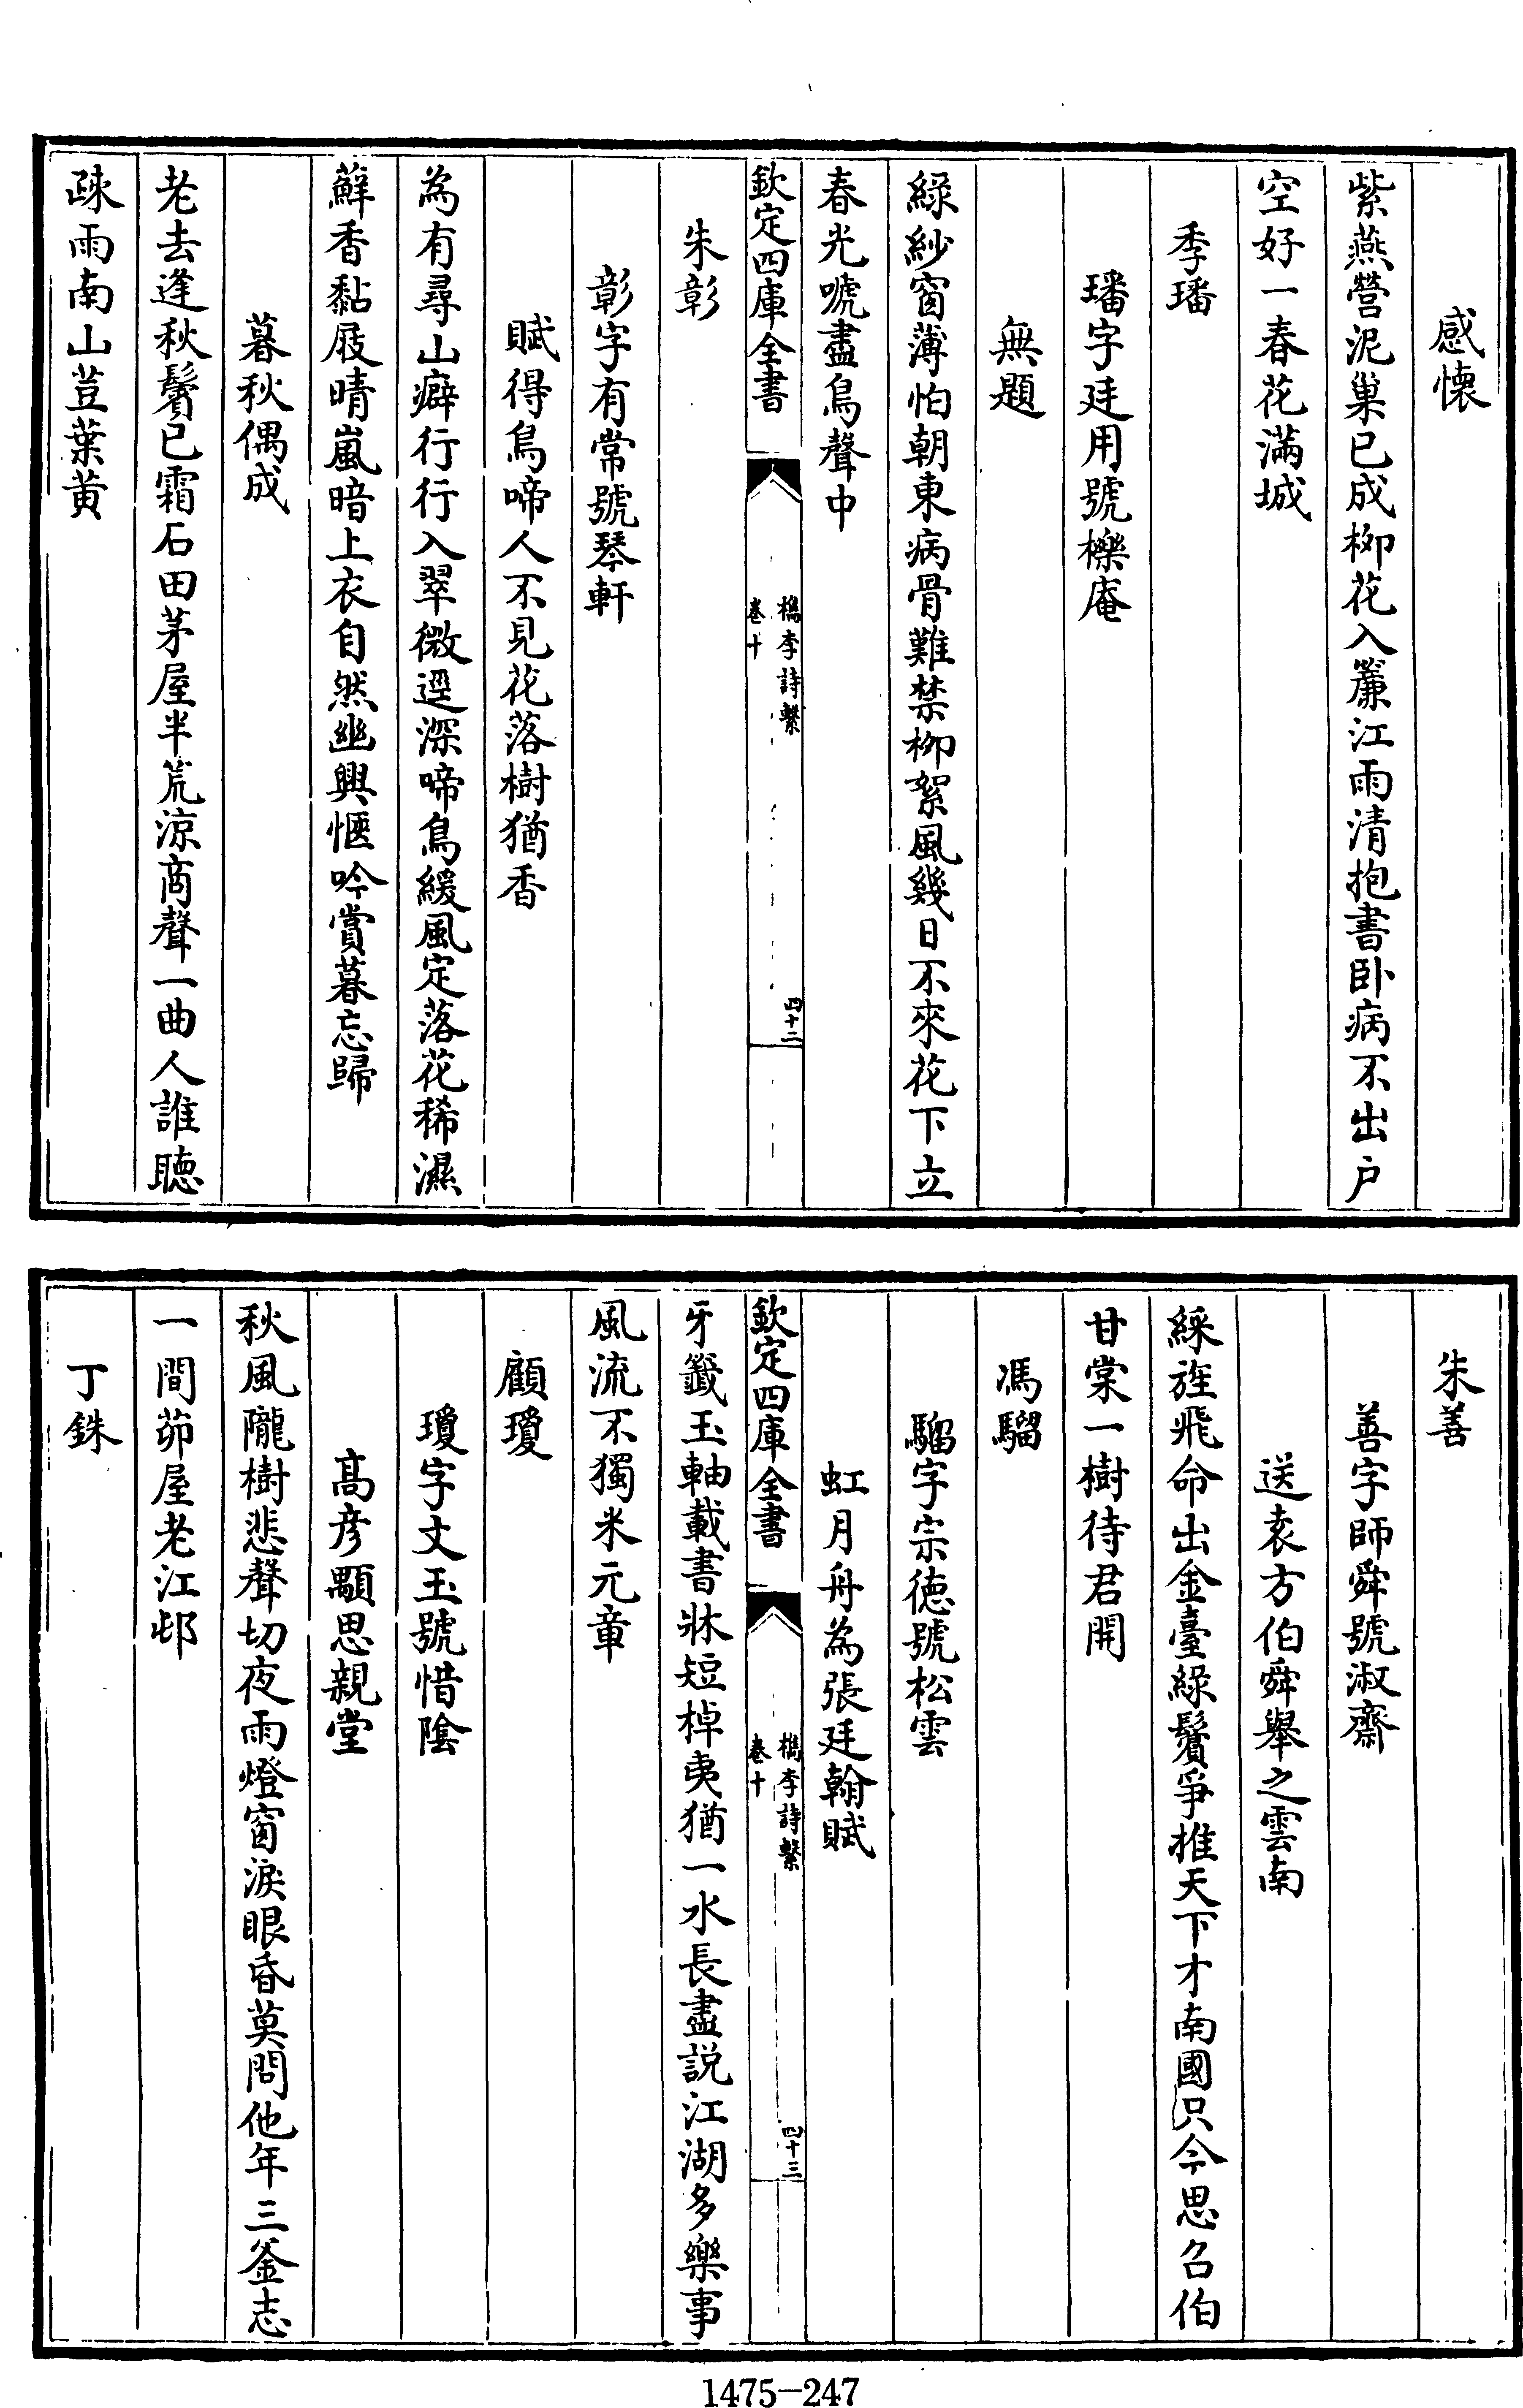 感懷
紫燕營泥巢已成柳花入簾江雨清抱書卧病不出户
空好一春花滿城
季璠
璠字廷用號櫟庵
無題
綠紗窗薄怕朝東病骨難禁柳絮風幾日不來花下立
春光唬盡鳥聲中
欽定四庫全書
檇李詩繫
卷十
四十二
朱彰
彰字有常號琴軒
賦得鳥啼人不見花落樹猶香
為有尋山癖行行入翠微逕深啼鳥緩風定落花稀濕
蘚香黏屐晴嵐暗上衣自然幽興愜吟賞暮忘歸
暮秋偶成
老去逢秋鬢已霜石田茅屋半荒涼商聲一曲人誰聽
疎雨南山荳葉黄
朱善
善字師舜號淑齋
送袁方伯舜舉之雲南
綵旌飛命出金臺綠鬢爭推天下才南國只今思召伯
甘棠一樹待君開
馮騮
騮字宗德號松雲
虹月舟為張廷翰賦
牙籤玉軸載書牀短棹夷猶一水長盡説江湖多樂事
風流不獨米元章
欽定四庫全書
檇李詩繫
卷十
四十三
顧瓊
瓊字文玉號惜陰
高彥顒思親堂
秋風隴樹悲聲切夜雨燈窗淚眼昏莫問他年三釜志
一間茆屋老江邨
丁銖
1475-247